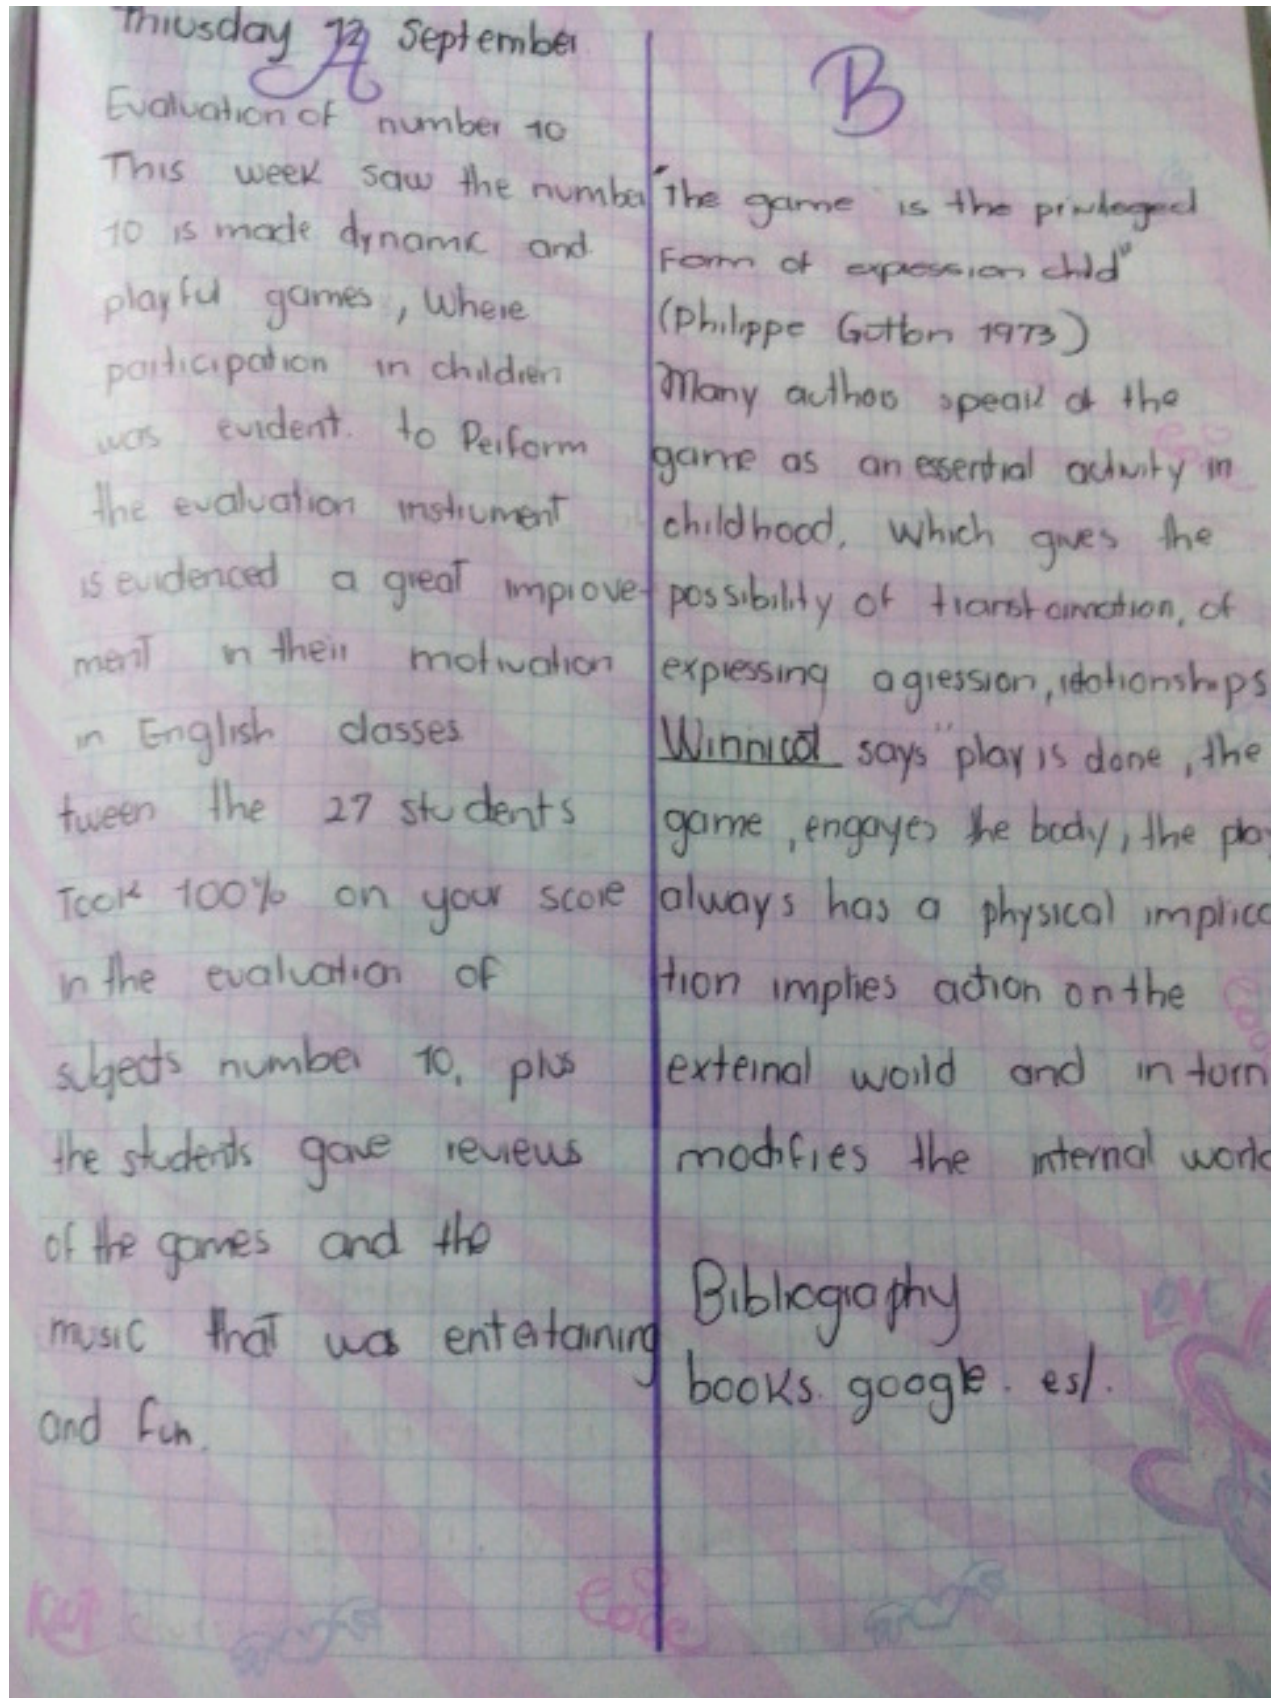 Thursday 12 September
A
Evaluation of number 10
This week saw the number
10 is made dynamic and
playful games, where
participation in children
was evident. to Perform
the evaluation instrument
is evidenced a great improve-
ment in their motivation
in English classes
tween the 27 students
Took 100% on your score
in the evaluation of
subjects number 10, plus
the students gave reviews
of the games and the
music that was entertaining
and fun.
B
"The game is the privileged
Form of expession child"
(Philippe Gutton 1973)
Many authos speak of the
game as an essential activity in
childhood, which gives the
possibility of transformation, of
expressing agression, relationships
Winnicot says "play is done, the
game, engages the body, the pla
always has a physical implica
tion implies action on the
external world and in torn
modifies the internal world
Bibliography
books. google. es/.
Love
Love